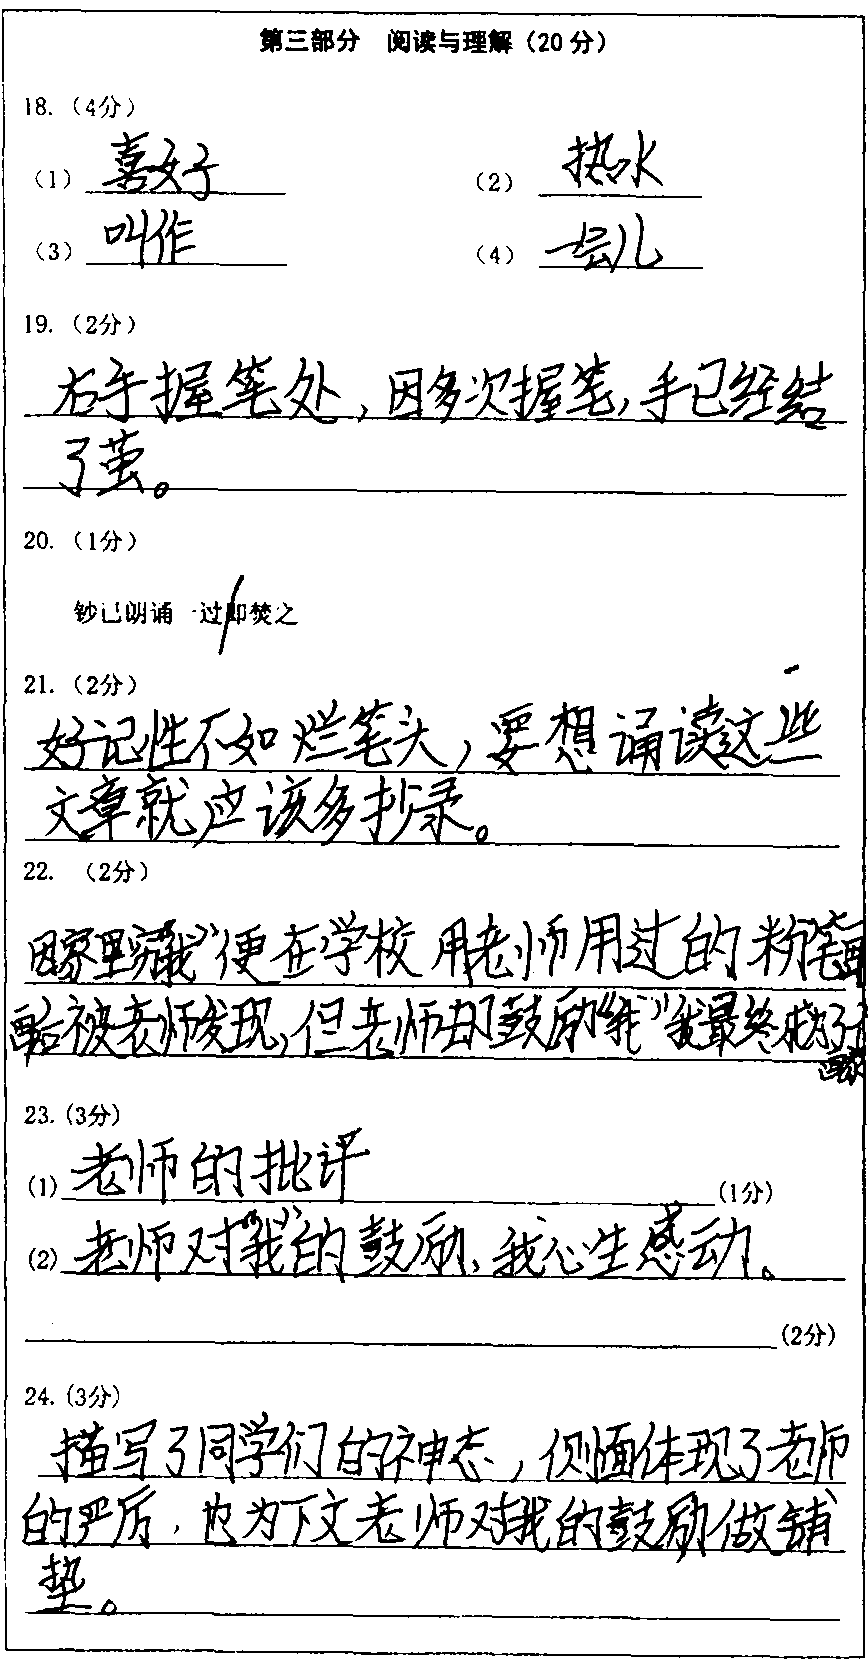 第三部分 阅读与理解（20分）
18.（4分）
（1）喜好 （2）热水
（3）叫作 （4）一会儿
19.（2分）
右手握笔处，因多次握笔，手已经结
了茧。
20.（1分）
钞已朗诵一过/即焚之
21.（2分）
好记性不如烂笔头，要想诵读这些
文章就应该多抄录。
22. （2分）
因家里穷“我”便在学校用老师用过的粉笔画
画后被老师发现，但老师却鼓励“我”我最终成为了
画家
23.(3分)
(1)老师的批评(1分)
(2)老师对“我”的鼓励，我心生感动。
(2分)
24.(3分)
描写了同学们的神态，侧面体现了老师
的严厉，也为下文老师对我的鼓励做铺
垫。